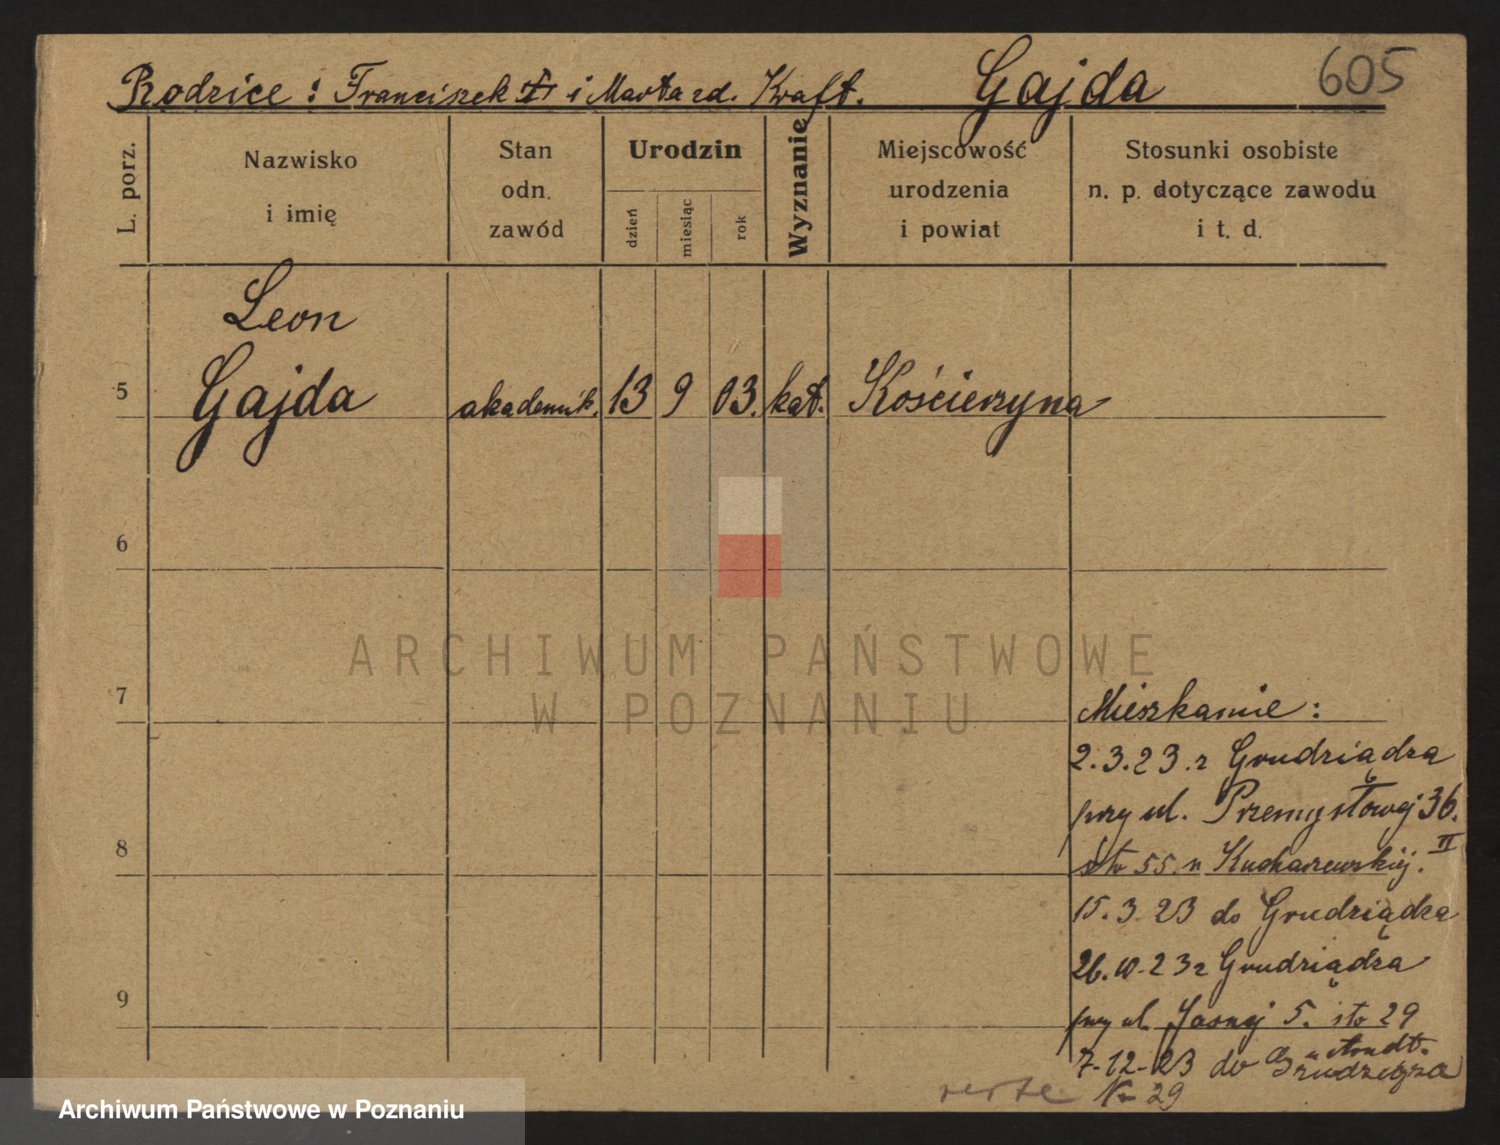 Rodzice : Franciszek i Marta zd. Kraft. Gajda 605
L. porz.
Nazwisko
i imię
Stan
odn.
zawód
Urodzin
dzień
miesiąc
rok
Wyznanie
Miejscowość
urodzenia
i powiat
Stosunki osobiste
n. p. dotyczące zawodu
i t. d.
Leon
5 Gajda akademik. 13 9 03. kat. Kościerzyna
6
ARCHIWUM PAŃSTWOWE
W POZNANIU
7
Mieszkanie :
2.3.23. z Grudziądza
przy ul. Przemysłowej 36.
8
II
sto 55. u Kucharzewskiej.
15.3.23 do Grudziądza
26.10.23 z Grudziądza
9
przy ul. Jasnej 5. sto 29
7-12-23 do Grudziądza
verte Nr 29
Archiwum Państwowe w Poznaniu